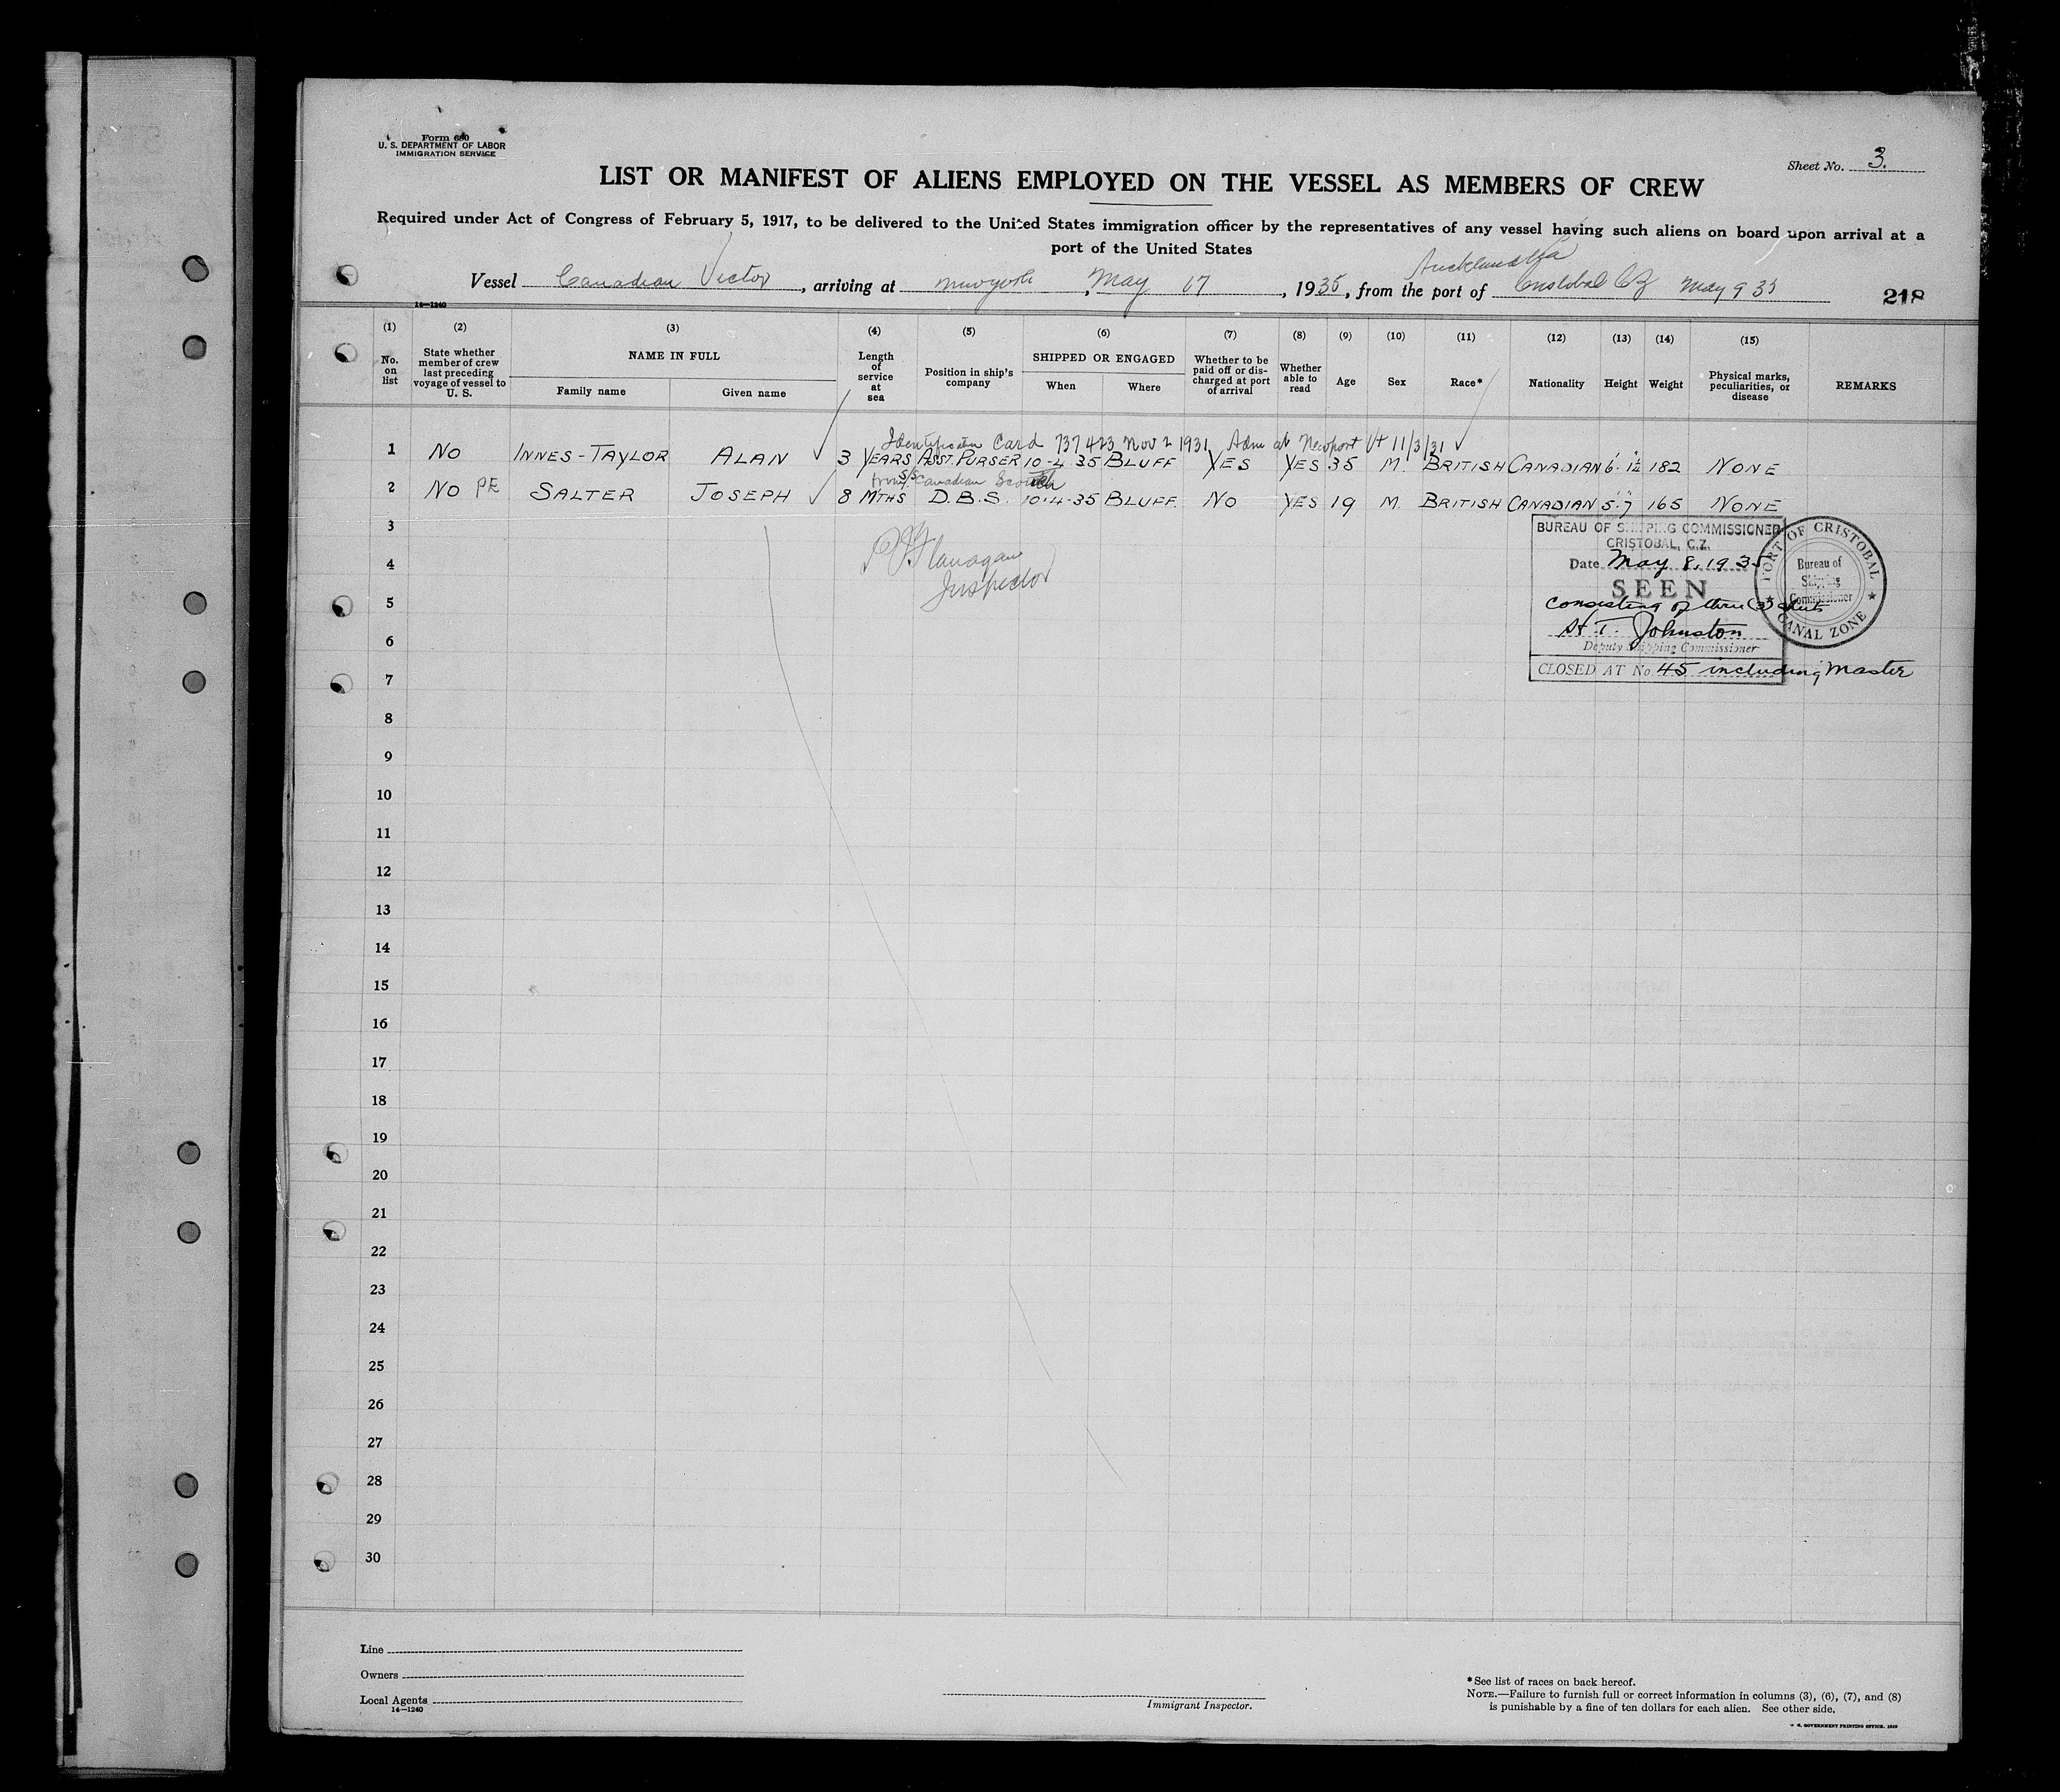 Form 680
U. S. DEPARTMENT OF LABOR
IMMIGRATION SERVICE
Sheet No. 3.
LIST OR MANIFEST OF ALIENS EMPLOYED ON THE VESSEL AS MEMBERS OF CREW
Required under Act of Congress of February 5, 1917, to be delivered to the United States immigration officer by the representatives of any vessel having such aliens on board upon arrival at a
port of the United States
Vessel Canadian Victor, arriving at New York, May 17, 1935, from the port of Cristobal CZ May 9 35
14—1240
218
(1) (2) (3) (4) (5) (6) (7) (8) (9) (10) (11) (12) (13) (14) (15)
No. on list
State whether member of crew last preceding voyage of vessel to U. S.
NAME IN FULL
Family name Given name
Length of service at sea
Position in ship's company
SHIPPED OR ENGAGED
When Where
Whether to be paid off or dis-charged at port of arrival
Whether able to read
Age
Sex
Race*
Nationality
Height
Weight
Physical marks, peculiarities, or disease
REMARKS
Identification Card 737423 Nov 2 1931 Adm at Newport Vt 11/3/31
1 NO INNES-TAYLOR ALAN 3 YEARS ASST. PURSER 10-4 35 BLUFF YES YES 35 M. BRITISH CANADIAN 6' 1½" 182 NONE
from S/S Canadian
2 NO PE SALTER JOSEPH 8 MTHS D.B.S. 10-4-35 BLUFF. NO YES 19 M. BRITISH CANADIAN 5'7" 165 NONE
3
4
5
6
7
8
9
10
11
12
13
14
15
16
17
18
19
20
21
22
23
24
25
26
27
28
29
30
Flanagan
Inspector
BUREAU OF SHIPPING COMMISSIONER
CRISTOBAL, C.Z.
Date May 8, 1935
SEEN
consisting of three (3) sheets
H. T. Johnston
Deputy Shipping Commissioner
CLOSED AT No. 45 including Master
PORT OF CRISTOBAL
Bureau of
Shipping
Commissioner
CANAL ZONE
Line
Owners
Local Agents
14—1240
Immigrant Inspector.
*See list of races on back hereof.
NOTE.—Failure to furnish full or correct information in columns (3), (6), (7), and (8)
is punishable by a fine of ten dollars for each alien. See other side.
U. S. GOVERNMENT PRINTING OFFICE